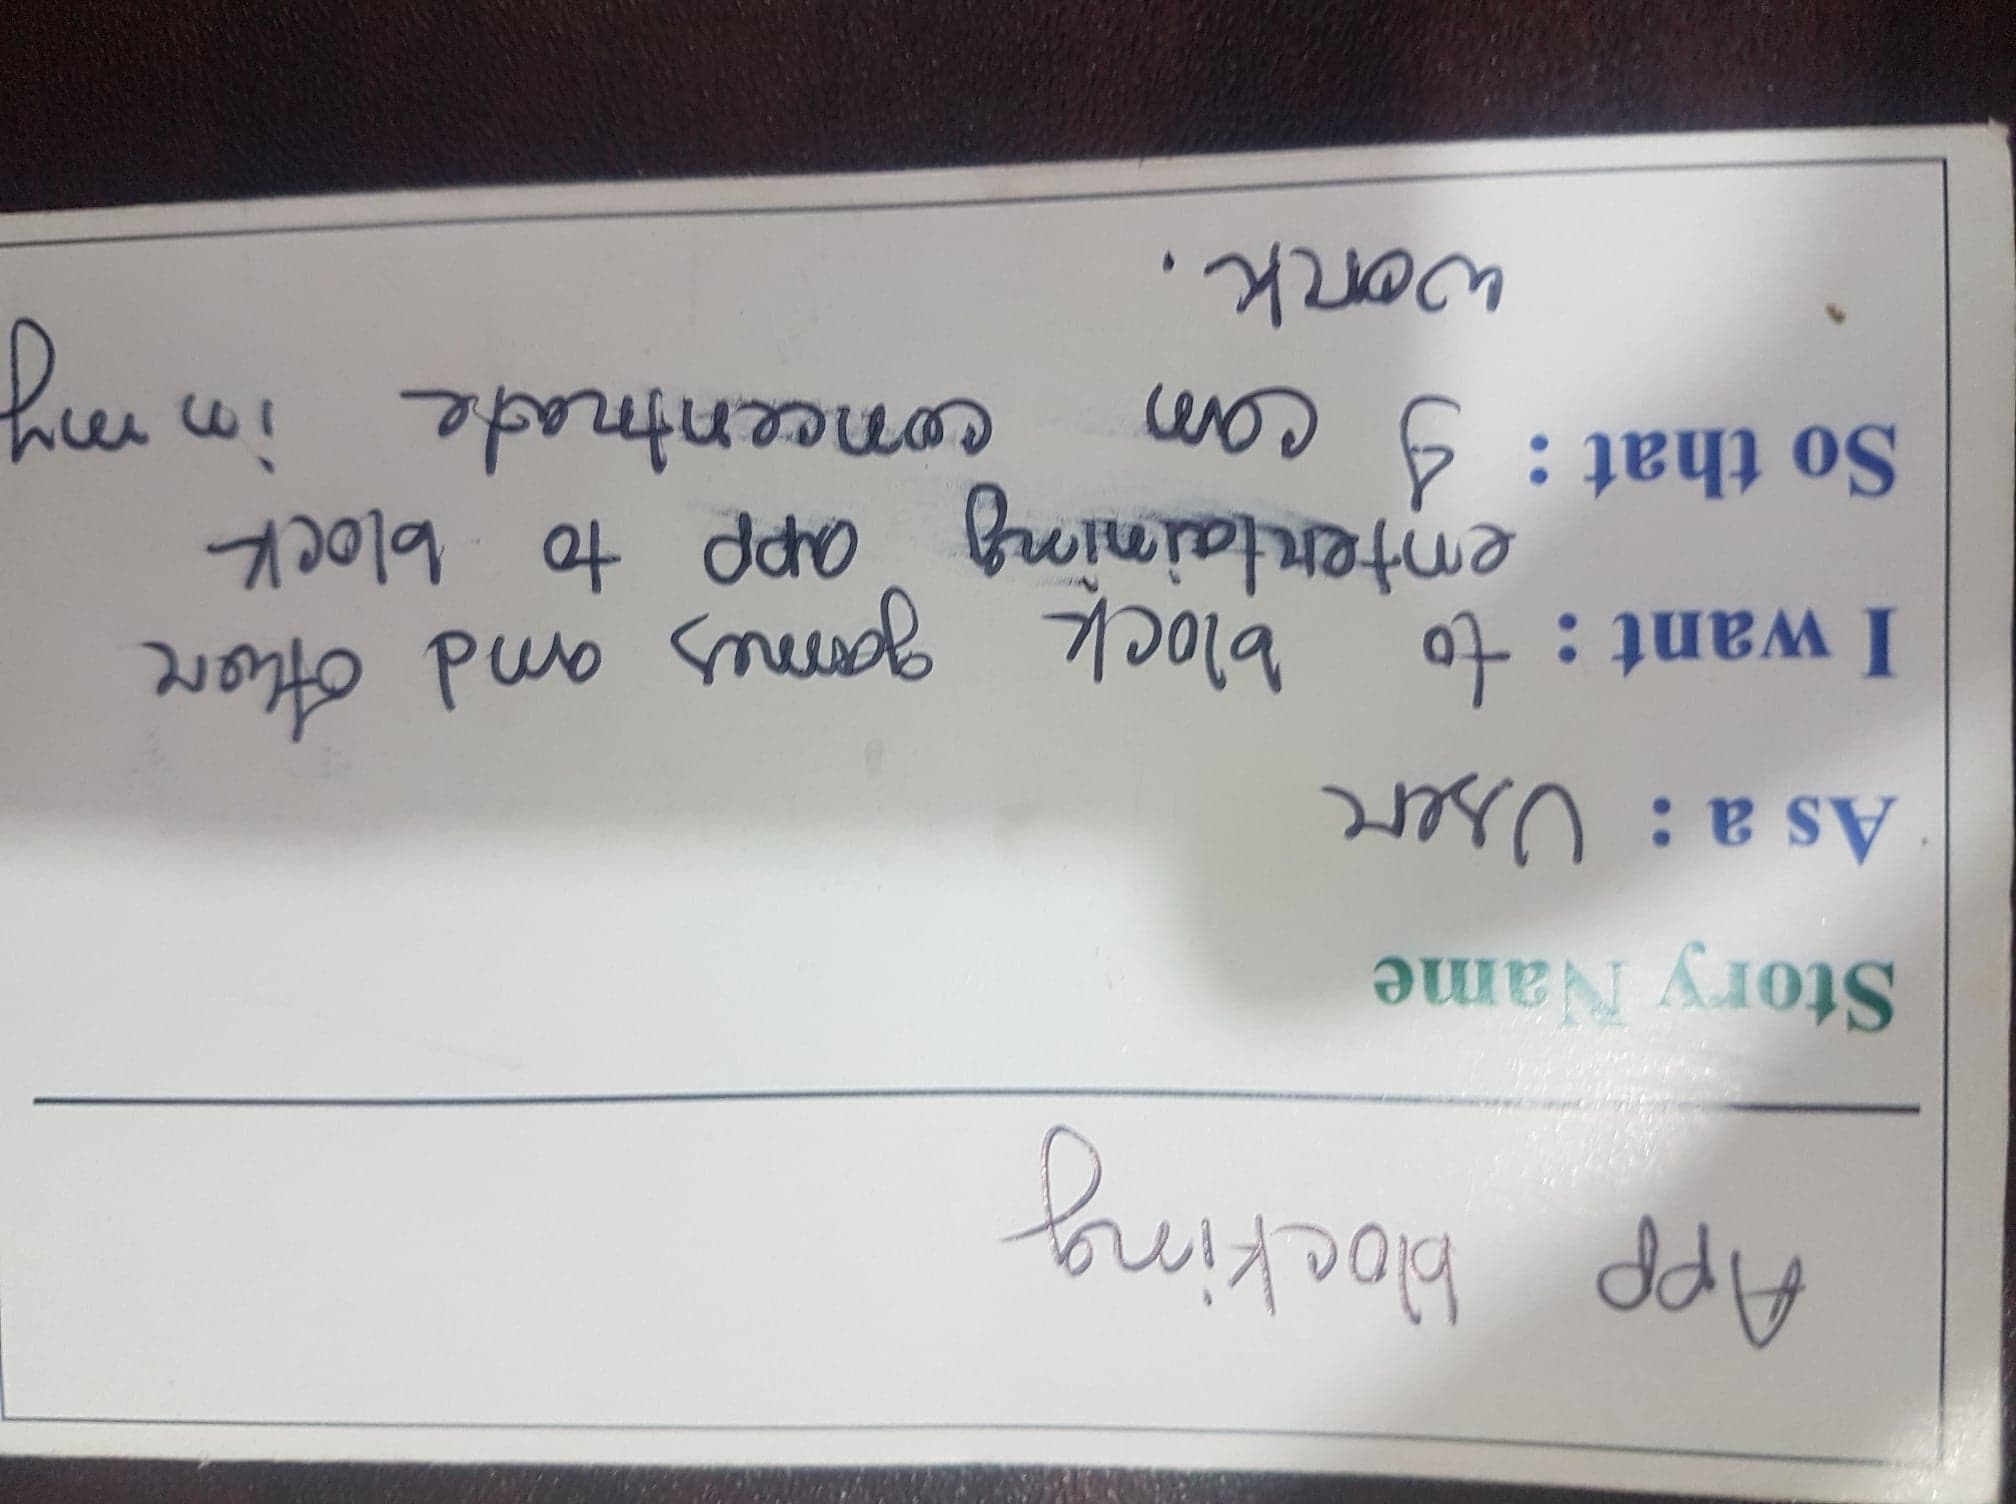 App blocking
Story Name
As a : User
I want : to block games and other
entertaining app to block
So that : I can concentrate in my
work.